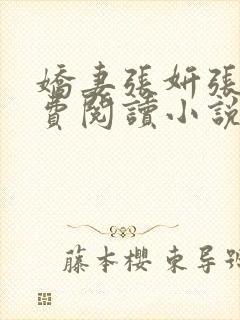 嬌妻張妍張
費閱讀小說
藤本櫻東导